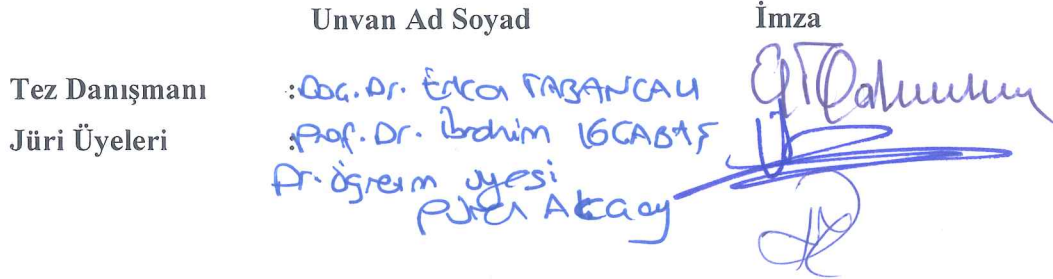 Unvan Ad Soyad İmza
Tez Danışmanı :Doç. Dr. TABANCALI
Jüri Üyeleri :Prof. Dr. İbrahim
Dr. öğretim üyesi
Akçay